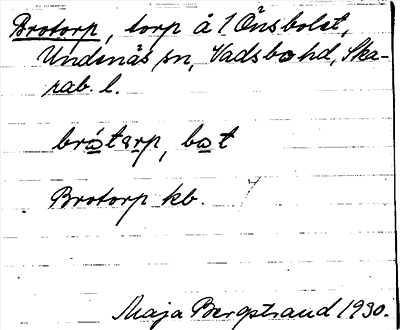 Brotorp, torp å 1 Önsbolet,
Undenäs sn, Vadsbo hd, Ska-
rab. l.
brótarp, bot
Brotorp kb.
Maja Bergstrand 1930.